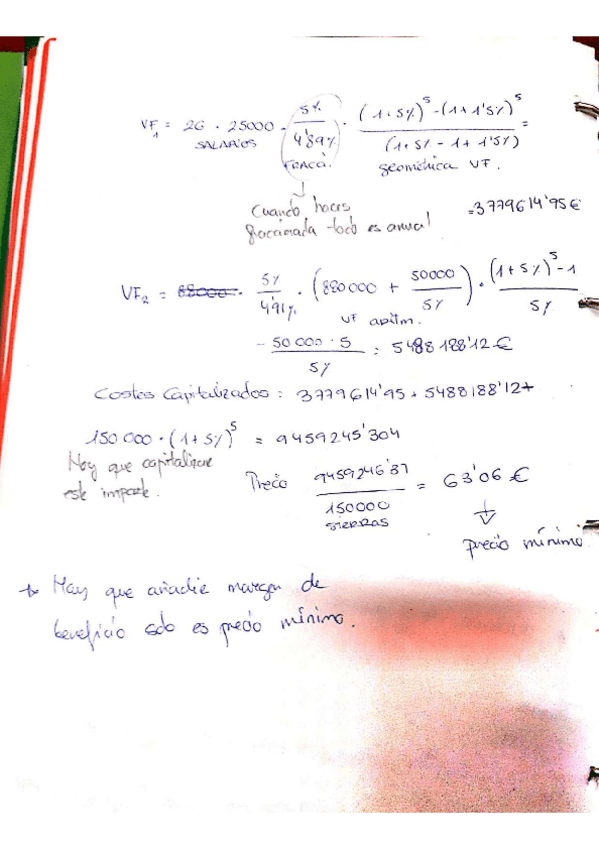 VF₁ = 26 · 25000 · 5% / 4'89% · ((1+5%)⁵ - (1+1'5%)⁵) / (1+5% - 1+1'5%) =
SALARIOS FRACC. geométrica VF.
Cuando haces = 3779614'95€
fraccionada todo es anual
VF₂ = 88000 · 5% / 4'91% · (880000 + 50000 / 5%) · ((1+5%)⁵ - 1) / 5%
VF aritm.
- 50000 · 5 / 5% = 5488188'12€
Costes Capitalizados = 3779614'95 + 5488188'12+
150000 · (1+5%)⁵ = 9459245'304
Hay que capitalizar
este importe.
Precio 9459246'37 / 150000 = 63'06€
SIERRAS
precio mínimo.
Hay que añadir margen de
beneficio solo es precio mínimo.